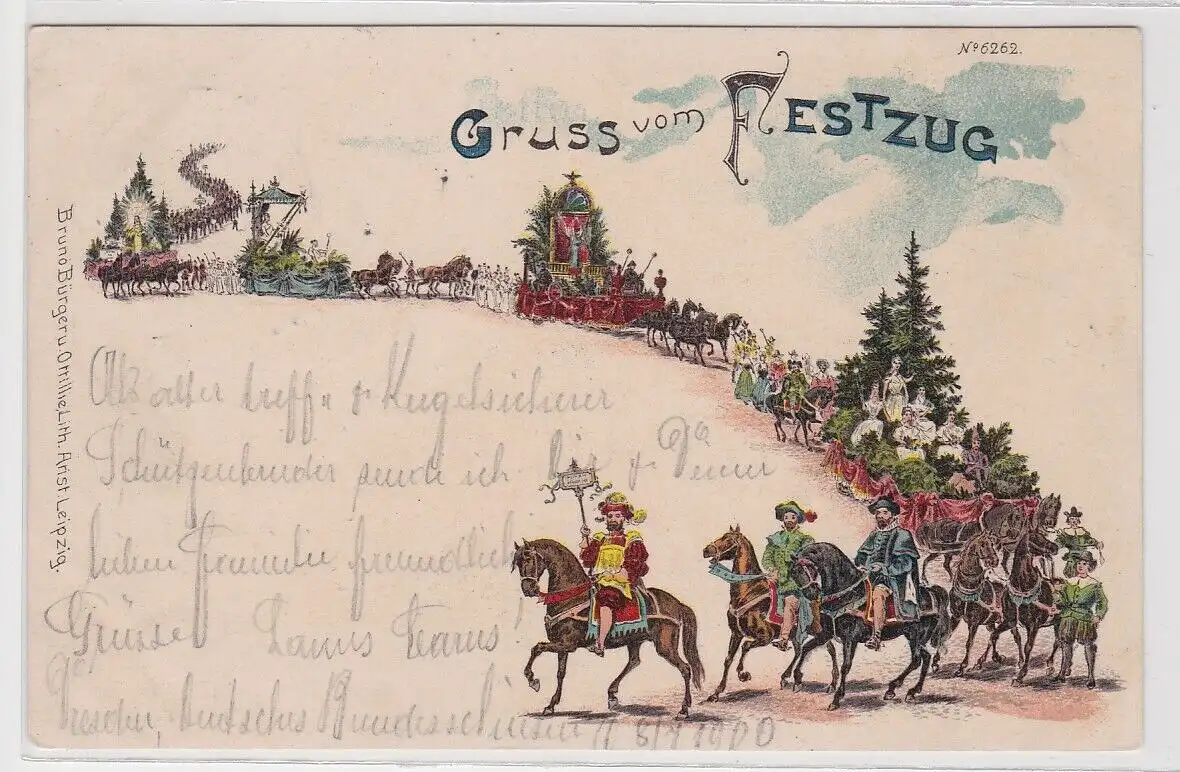 Nº 6262.
Gruss vom Festzug
Bruno Bürger u. Ottillie, Lith. Anst. Leipzig.
Als alter treff u &amp; Kugelsicherer
Schützenbruder sende ich Dir &amp; Deiner
lieben Familie freundliche
Grüsse
Dresden, deutsches Bundesschiessen 8/7 1900